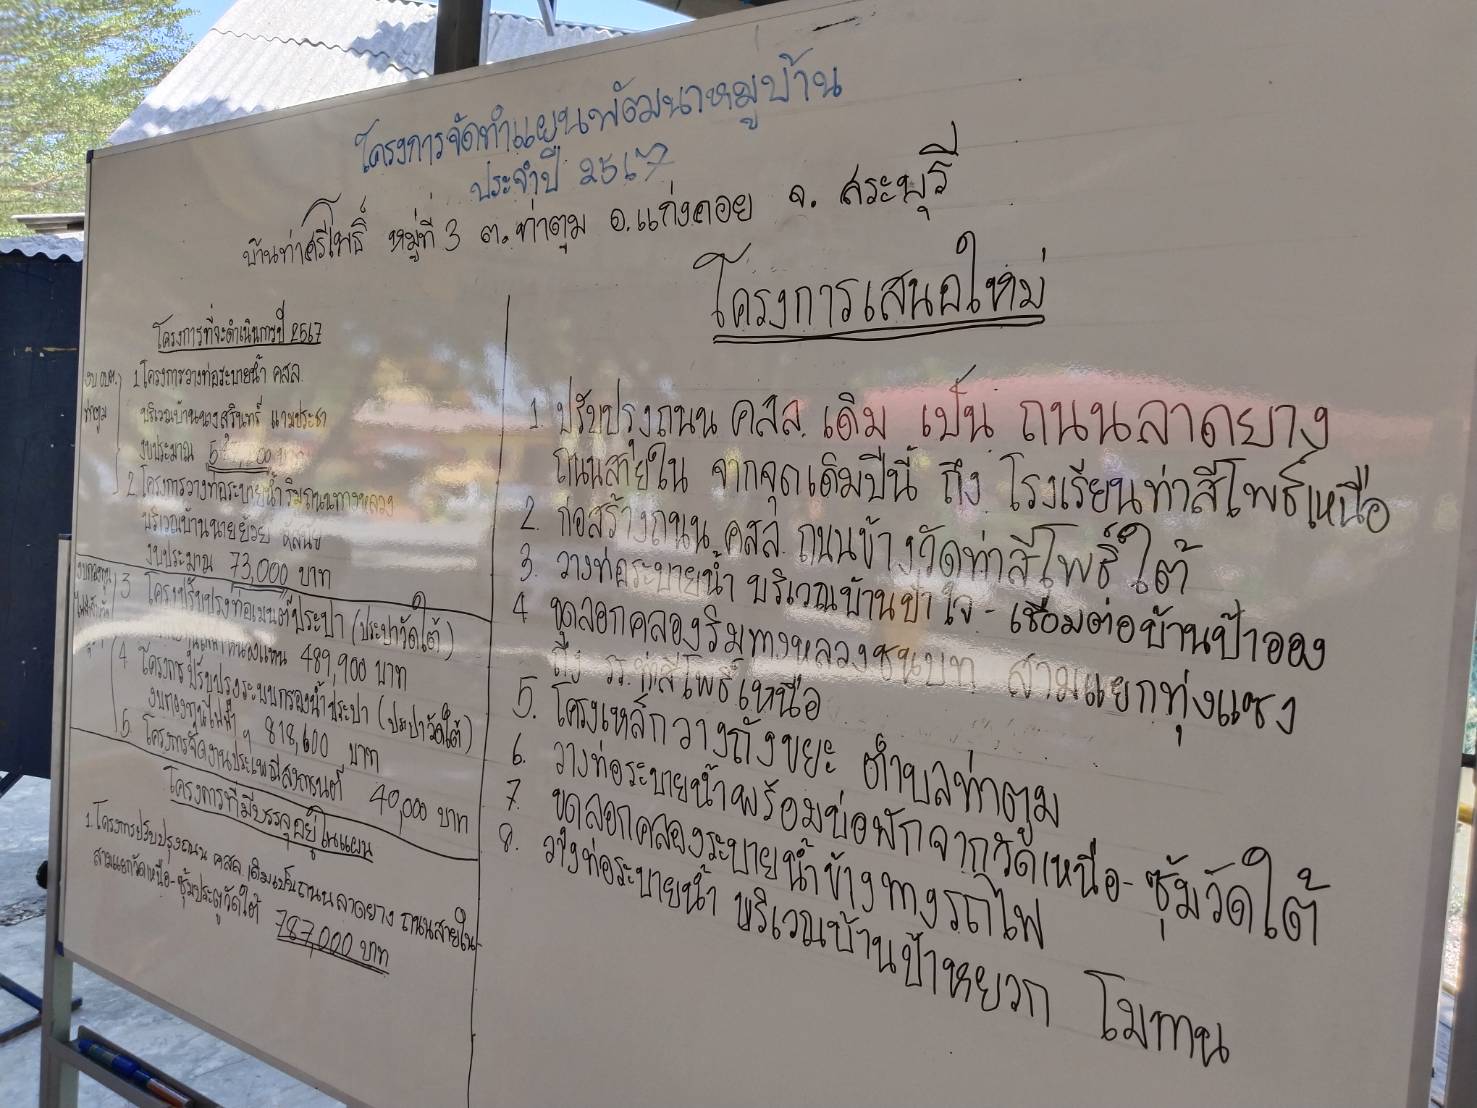 โครงการจัดทำแผนพัฒนาหมู่บ้าน
ประจำปี 2567
บ้านท่าศรีโพธิ์ หมู่ที่ 3 ต.ท่าตูม อ.แก่งคอย จ. สระบุรี
โครงการที่จะดำเนินการปี 2567
งบ อบต. ท่าตูม
1.โครงการวางท่อระบายน้ำ คสล.
บริเวณบ้านนางสุรินทร์ แามประชา
งบประมาณ
2.โครงการวางท่อระบายน้ำริมถนนทางหลวง
บริเวณบ้านนายย้วย
งบประมาณ 73,000 บาท
งบกองทุน
3 โครงปรับปรุงท่อเมนต์ประปา (ประปาวัดใต้)
489,900 บาท
4. โครงการปรับปรุงระบบกรองน้ำประปา (ประปาวัดใต้)
งบกองทุนไฟฟ้า ฯ 818,600 บาท
5. โครงการจัดงานประเพณีสงกรานต์ 40,000 บาท
โครงการที่มีบรรจุอยู่ในแผน
1.โครงการปรับปรุงถนน คสล.เดิมเป็นถนนลาดยาง ถนนสายใน
สามแยกวัดเหนือ-ซุ้มประตูวัดใต้ 787,000 บาท
โครงการเสนอใหม่
1. ปรับปรุงถนน คสล. เดิม เป็น ถนนลาดยาง
ถนนสายใน จากจุดเดิมปีนี้ ถึง โรงเรียนท่าสีโพธิ์เหนือ
2. ก่อสร้างถนน คสล. ถนนข้างวัดท่าสีโพธิ์ใต้
3. วางท่อระบายน้ำ บริเวณบ้านป้าใจ - เชื่อมต่อบ้านป้าออง
4 ขุดลอกคลองริมทางหลวงชนบท สามแยกทุ่งแซง
ถึง รร.ท่าสีโพธิ์เหนือ
5. โครงเหล็กวางถังขยะ ตำบลท่าตูม
6. วางท่อระบายน้ำพร้อมบ่อพักจากวัดเหนือ - ซุ้มวัดใต้
7. ขุดลอกคลองระบายน้ำข้างทางรถไฟ
8. วางท่อระบายน้ำ บริเวณบ้านป้าหยวก โมทาน